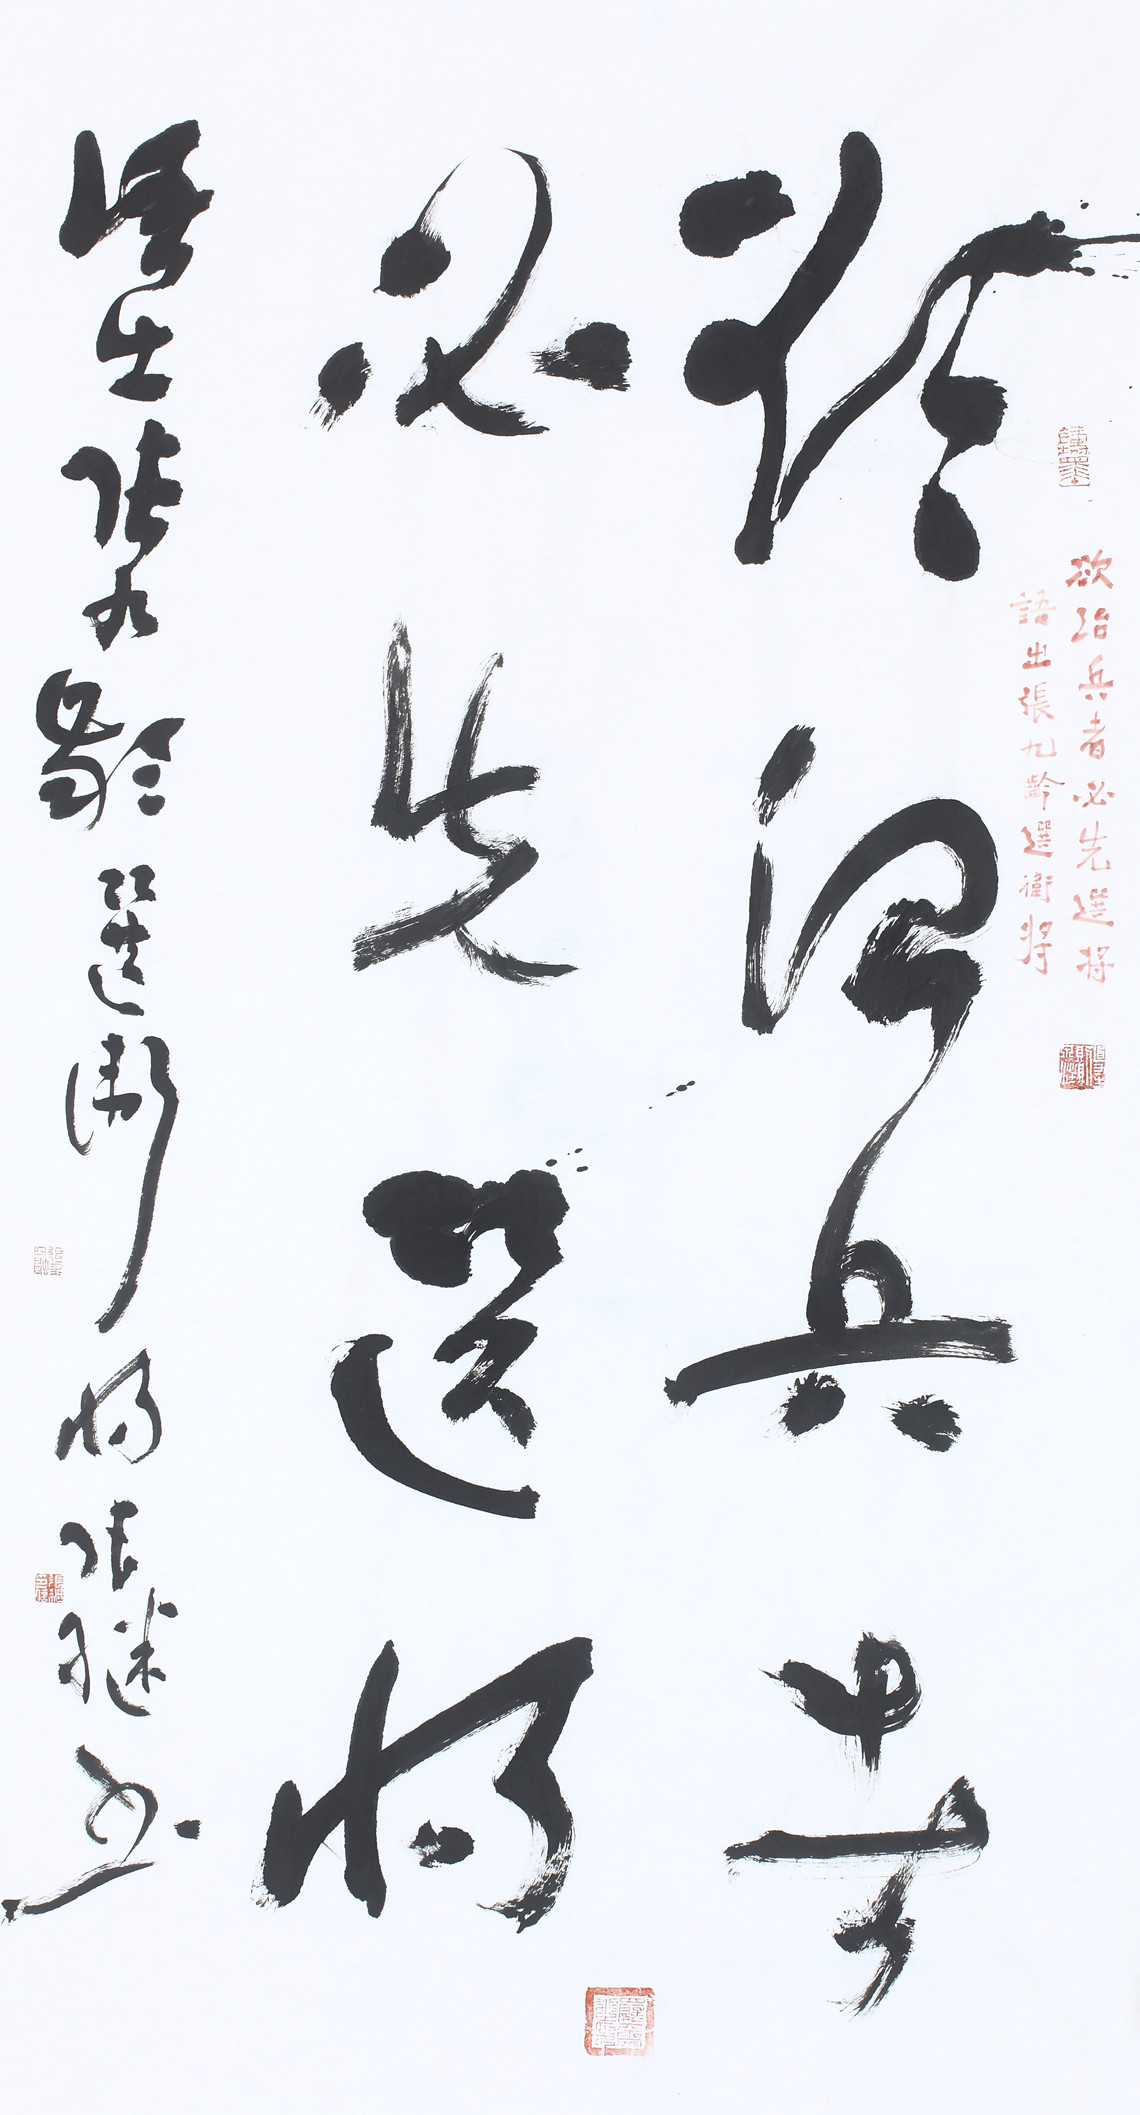 欲治兵者
必先選將
語出張九齡選衛將張継書
欲治兵者必先選将
語出張九齡選衛将